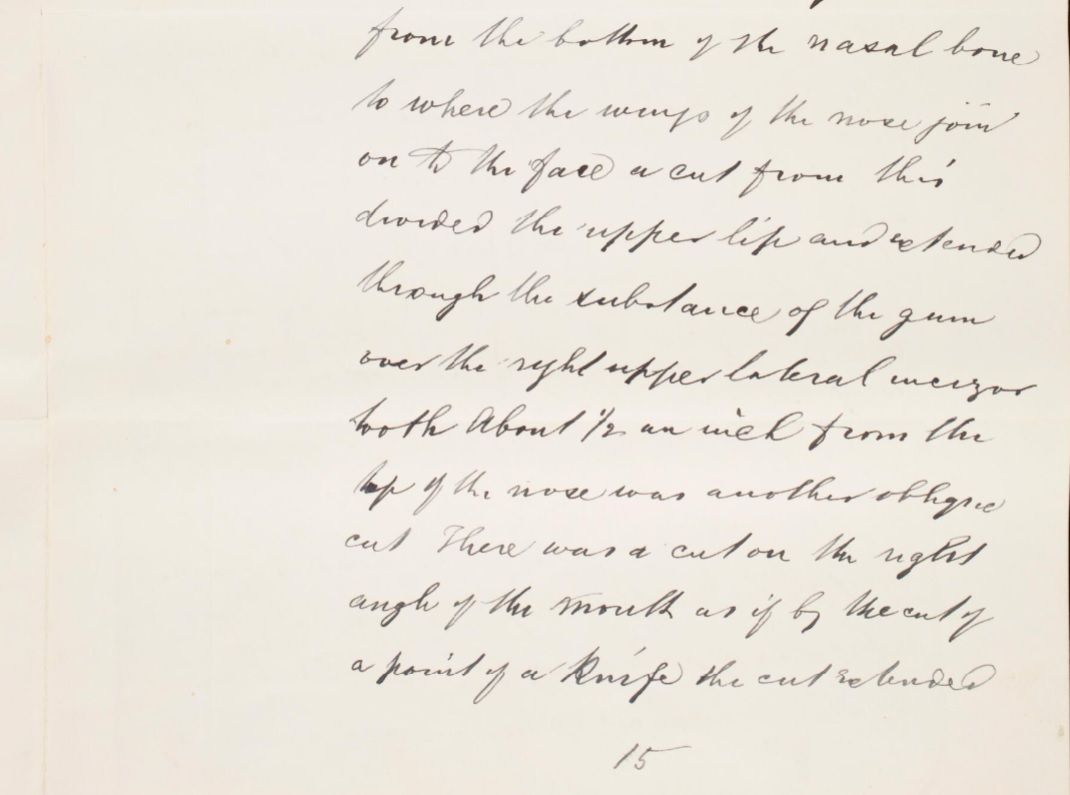 from the bottom of the nasal bone
to where the wings of the nose join
on to the face a cut from this
divided the upper lip and extended
through the substance of the gum
over the right upper lateral incisor
tooth About 1/2 an inch from the
top of the nose was another oblique
cut There was a cut on the right
angle of the mouth as if by the cut of
a point of a Knife the cut extended
15